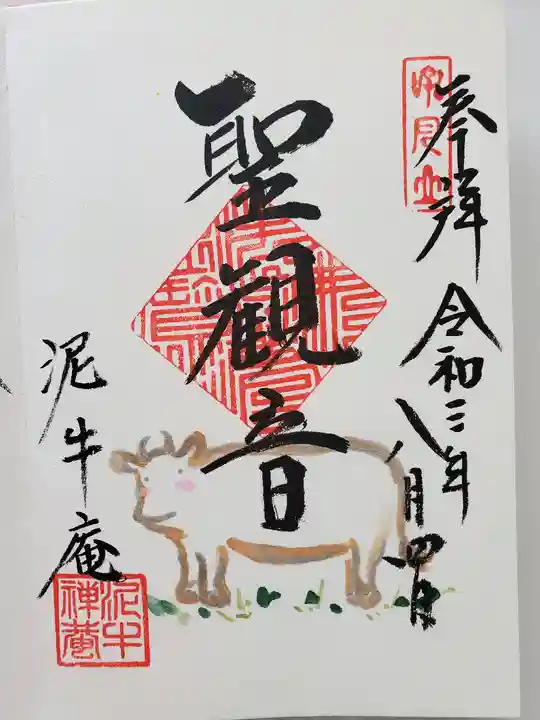 奉拝
令和三年
八月四日
聖観音
泥牛庵
泥牛
禅菴